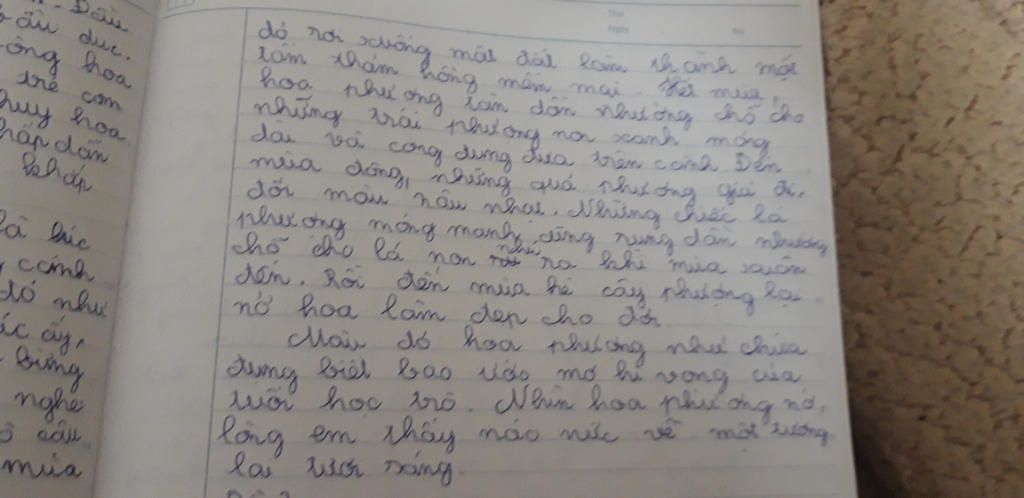 Dầu
ấu dục.
ông hoa
trẻ con
huy hoa
hấp dẫn
khắp
là lúc
cánh
đó như
ác ấy,
bừng
nghe
mùa
Thứ
Ngày
No.
đỏ rơi xuống mặt đất làm thành một
tấm thảm hồng mềm mại. Hết mùa,
hoa phượng tàn dần nhường chỗ cho
những trái phượng non xanh mỏng
dài và cong đung đưa trên cành. Đến
mùa đông, những quả phượng già đi,
đổi màu nâu nhạt. Những chiếc lá
phượng mỏng manh, cũng rụng dần nhường
chỗ cho lá non nhú ra khi mùa xuân
đến. Rồi đến mùa hè cây phượng lại
nở hoa làm đẹp cho đời.
Màu đỏ hoa phượng như chứa
đựng biết bao ước mơ hi vọng của
tuổi học trò. Nhìn hoa phượng nở,
lòng em thấy náo nức về một tương
lai tươi sáng.